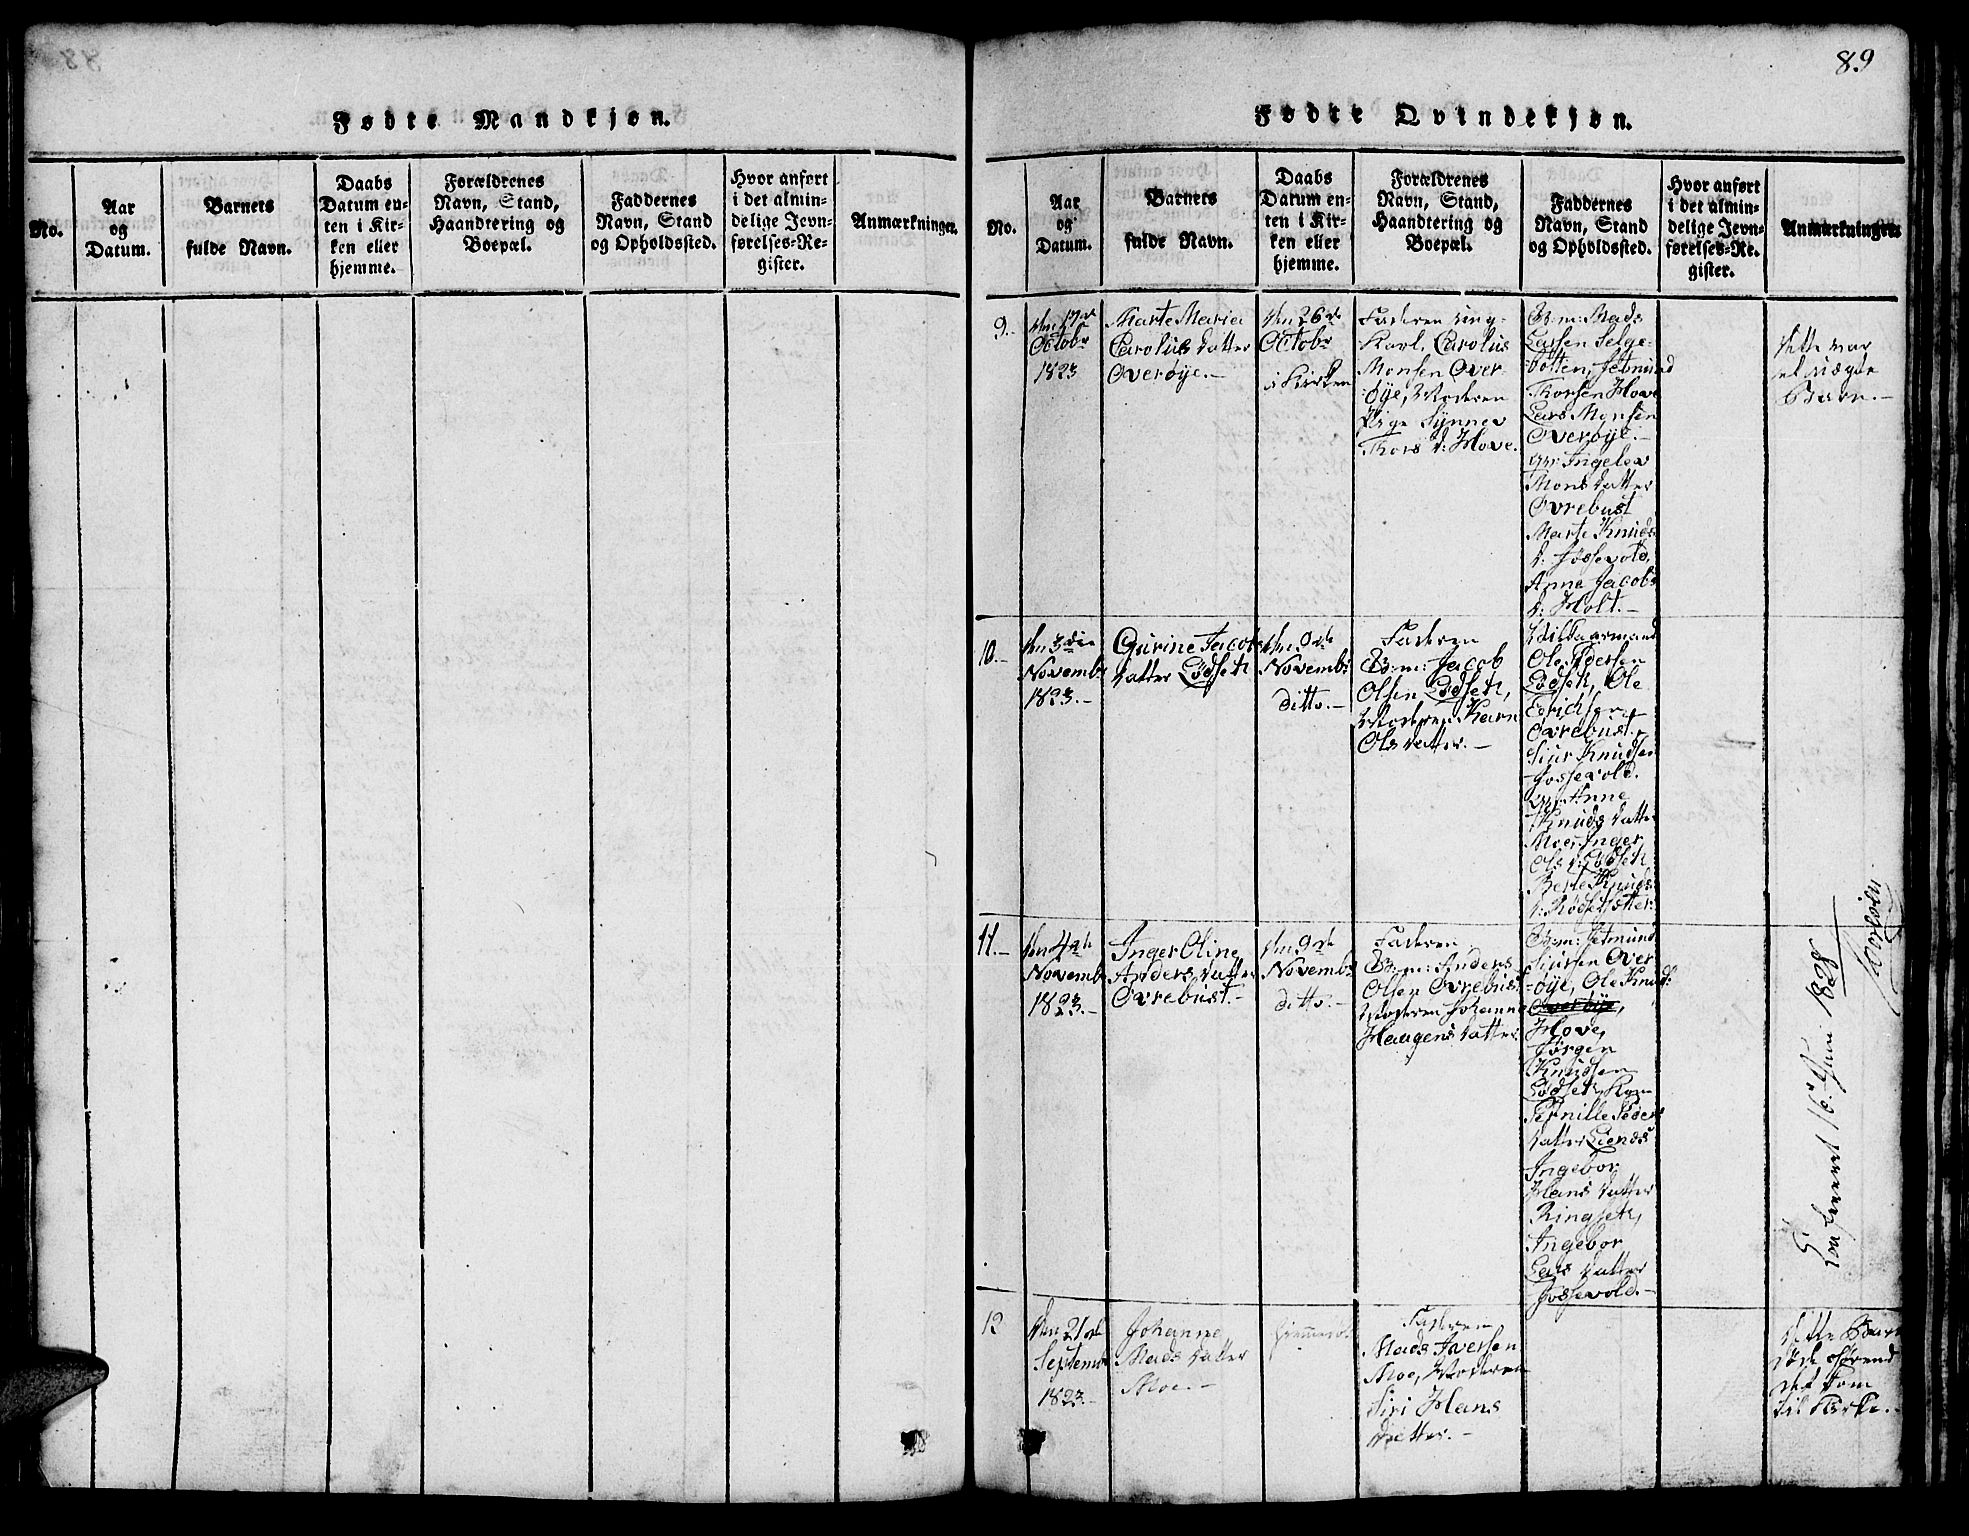 89
Fødte Mandkjøn.
No.
Aar
og
Datum.
Barnets
fulde Navn.
Daabs
Datum en-
ten i Kir-
ken eller
hjemme.
Forældrenes
Navn, Stand,
Haandtering og
Boepæl.
Faddernes
Navn, Stand
og Opholdssted.
Hvor anført
i det almin-
delige Jevn-
førelses-Re-
gister.
Anmærkninger.
Fødte Qvindekjøn.
No.
Aar
og
Datum.
Barnets
fulde Navn.
Daabs
Datum en-
ten i Kir-
ken eller
hjemme.
Forældrenes
Navn, Stand,
Haandtering og
Boepæl.
Faddernes
Navn, Stand
og Opholdssted.
Hvor anført
i det almin-
delige Jevn-
førelses-Re-
gister.
Anmærkninger.
9.-
den 17de
Octobr
1823
Marte Maria
Carolus datter
Overøye.-
den 26de
Octobr
i Kirken
Faderen ung-
Karl, Carolus
Monsen Over
øye, Moderen
Pige Synnev
Thors d: Hove.
B:m: Mads
Larsen Selge-
botten, Jetmund
Thorsen Hove
Lars Monsen
Overøye.-
qv: Ingelev
Mons datter
Ovrebust
Marte Knuds
d: Jossevold,
Anne Jacobs
d: Holt.-
dette var
et uægte
Barn.-
10.-
den 3die
Novembr
1823.-
Gurine Jacobs
datter Lødseth
den 9de
Novembr
ditto.-
Faderen
B:m: Jacob
Olsen Lødseth,
Moderen Karn
Ols datter.-
Ole Pedersen
Lødseth, Ole
Ovrebust.
Siur Knudsen
Jossevold.
qv: Anne
Knuds datter
Moe, Inger
Ols d: Lødseth
Berte Knuds
11.-
den 4de
Novembr
1823.-
Inger Oline
Anders datter
Ovrebust.-
den 9de
Novembr
ditto.-
Faderen
B:m: Anders
Olsen Ovrebust
Moderen Johanne
Haagens datter
B:m: Jetmund
Siursen Over
øye, Ole Knuds:
Overøye,
Hove,
Jørgen
Knudsen
Lødseth, Kon
Pernille Peders
datter Liends
Ingebor
Hans datter
Ringseth,
Ingebor
Lars datter
Jossevold.-
Confirmeret 16de Juni 1828
12
Den 21de
Septembr
1823.-
Johanne
Mads datter
Moe.-
Faderen
Mads Iversen
Moe, Moderen
Siri Hans
datter.-
dette Barn
døde førend
det kom
til Kirke.-